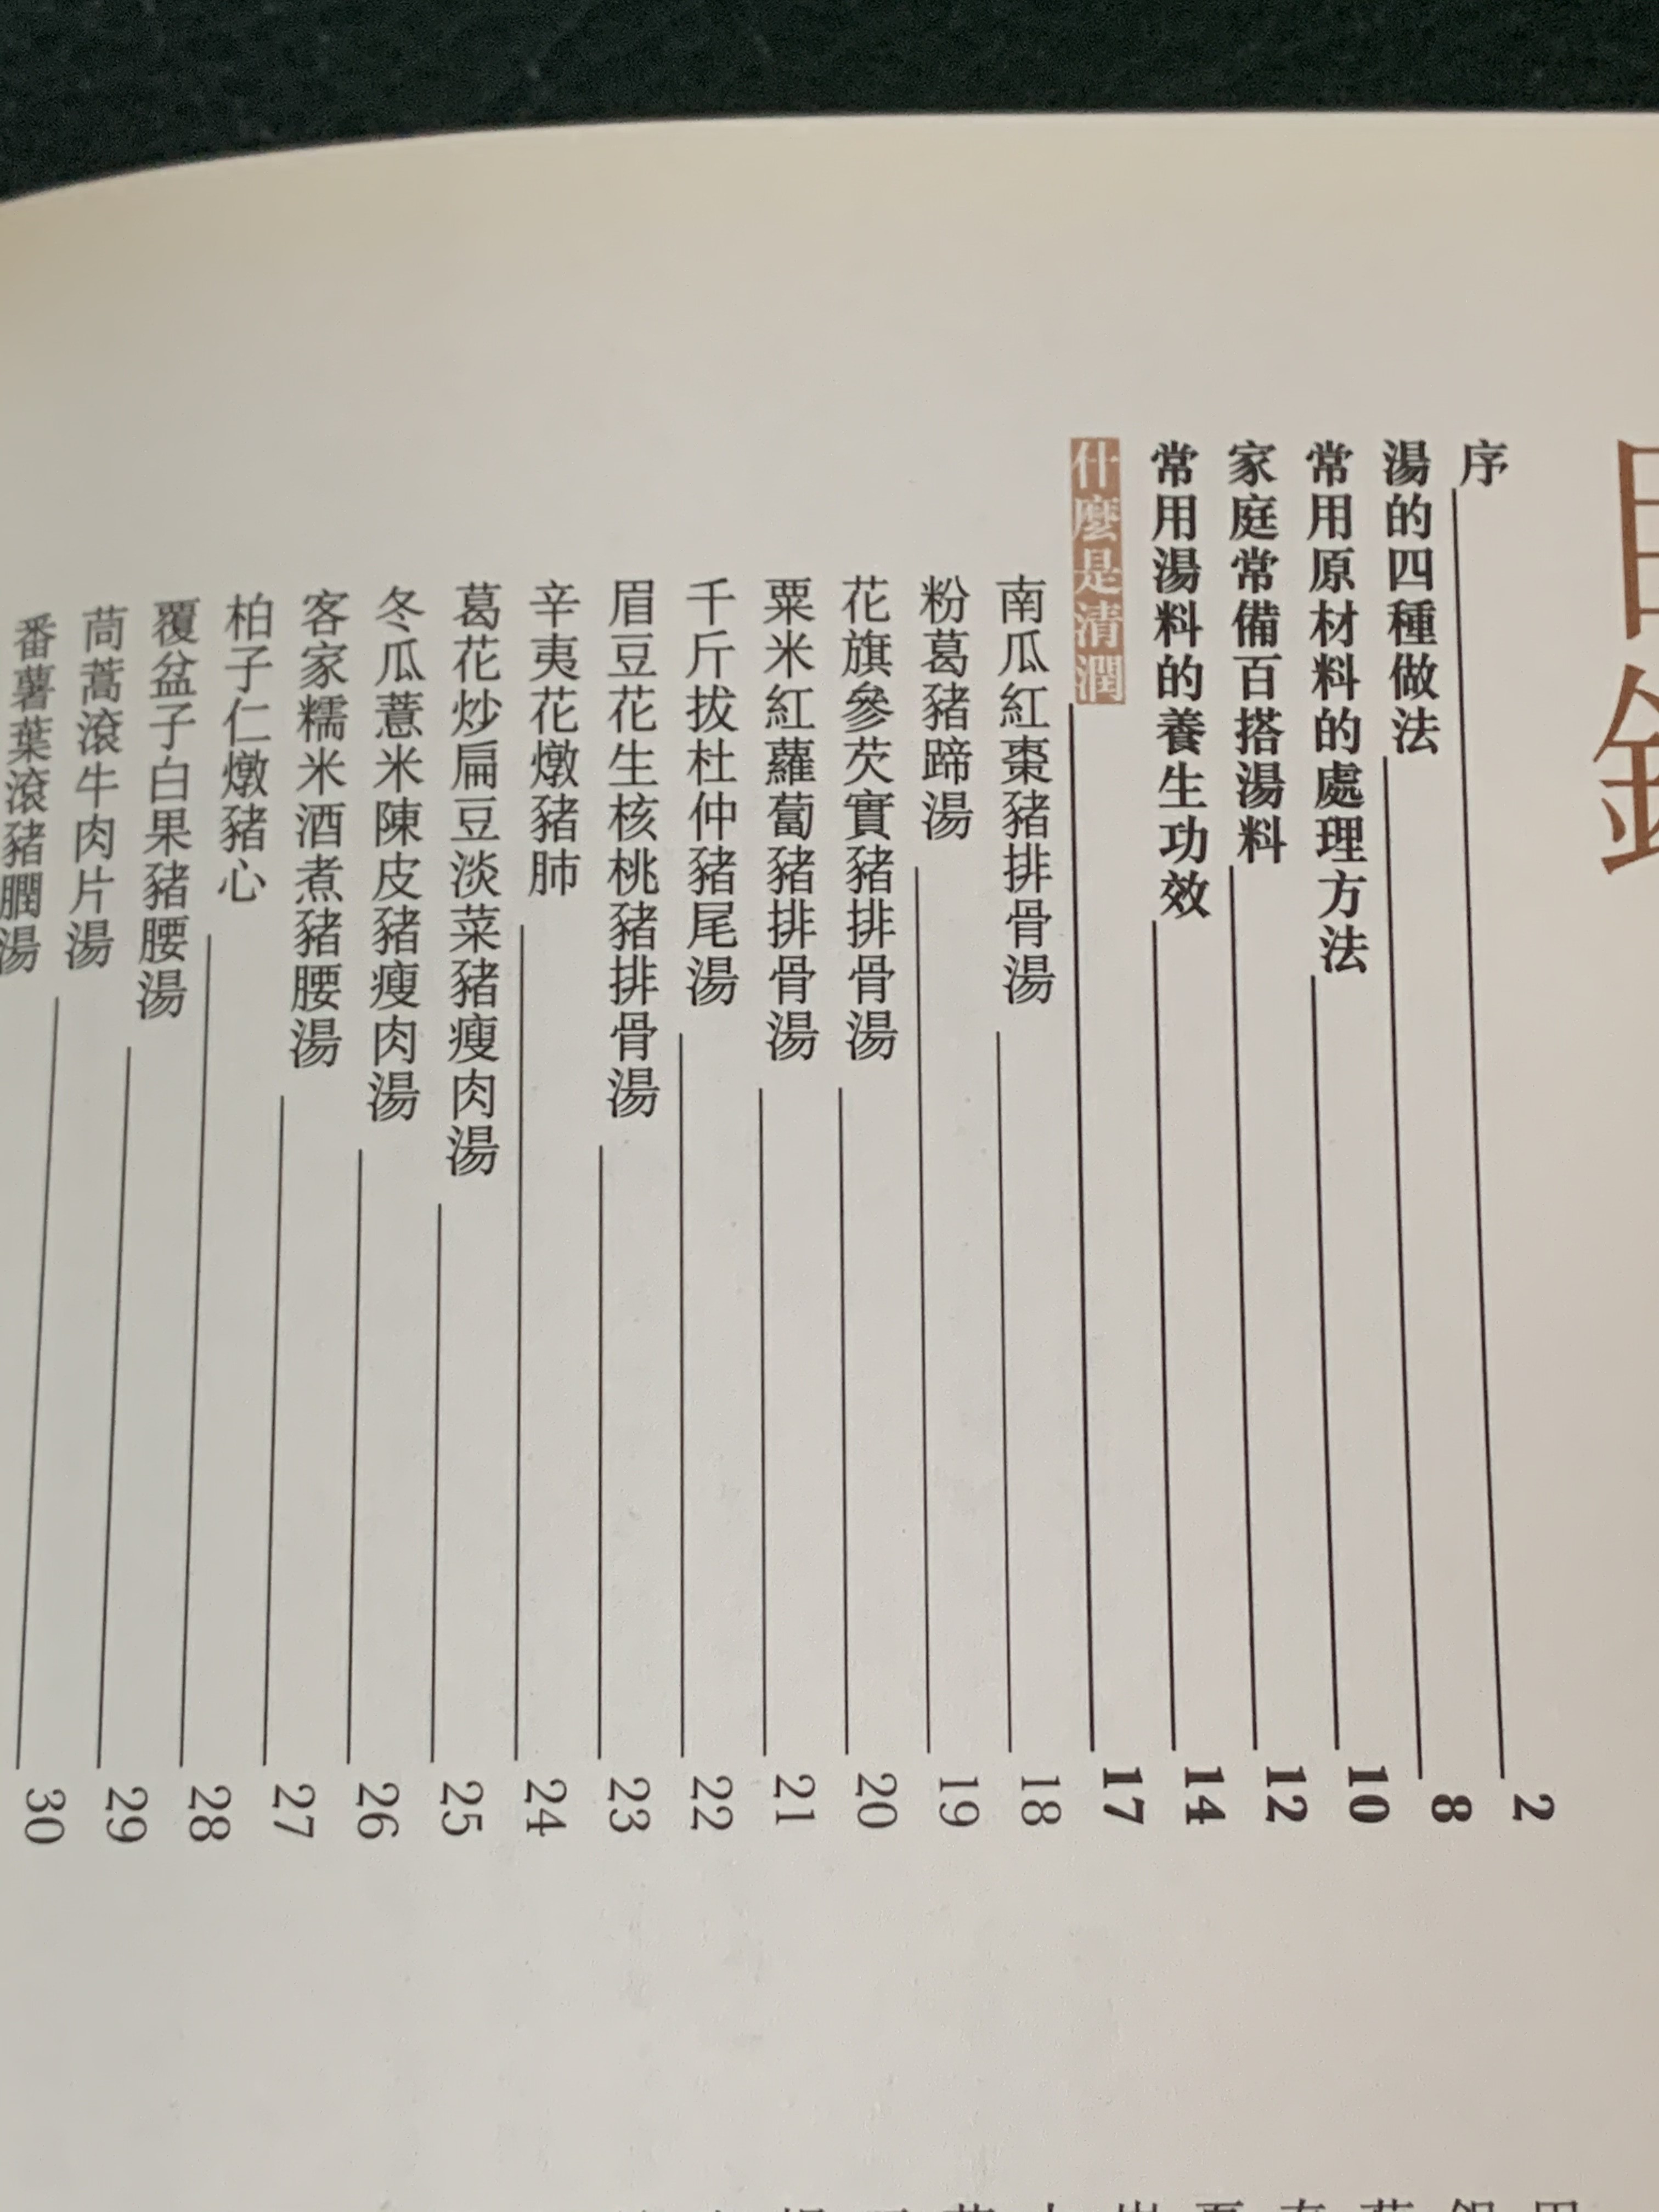 目錄
序 2
湯的四種做法 8
常用原材料的處理方法 10
家庭常備百搭湯料 12
常用湯料的養生功效 14
什麼是清潤 17
南瓜紅棗豬排骨湯 18
粉葛豬蹄湯 19
花旗參芡實豬排骨湯 20
粟米紅蘿蔔豬排骨湯 21
千斤拔杜仲豬尾湯 22
眉豆花生核桃豬排骨湯 23
辛夷花燉豬肺 24
葛花炒扁豆淡菜豬瘦肉湯 25
冬瓜薏米陳皮豬瘦肉湯 26
客家糯米酒煮豬腰湯 27
柏子仁燉豬心 28
覆盆子白果豬腰湯 29
茼蒿滾牛肉片湯 30
番薯葉滾豬膶湯